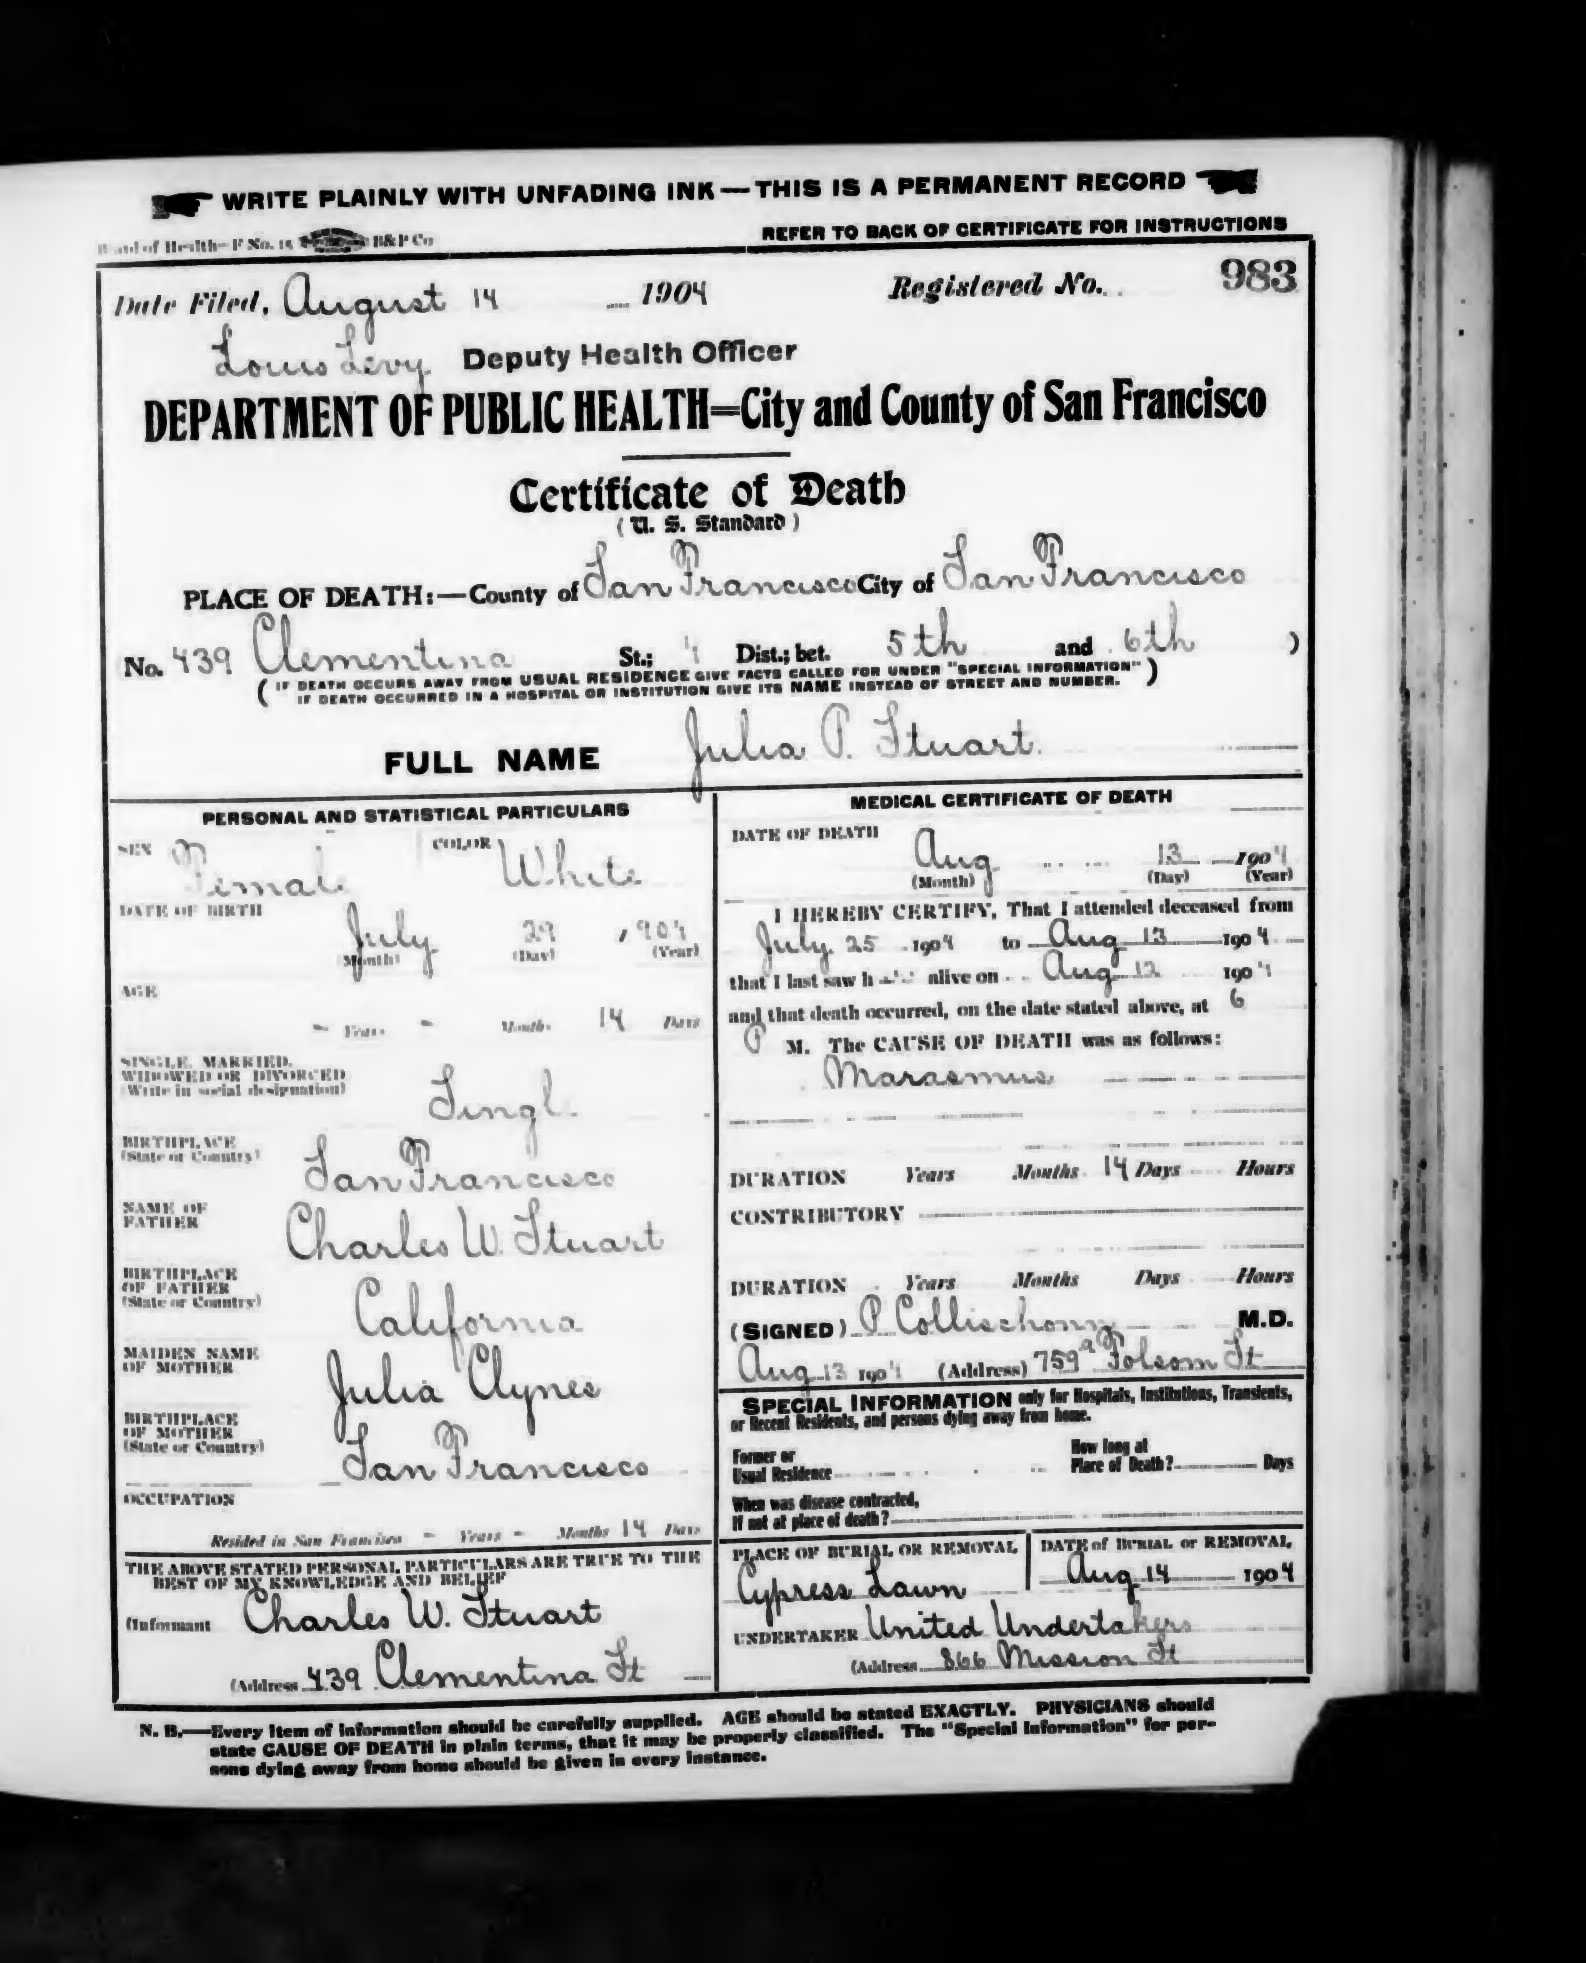 WRITE PLAINLY WITH UNFADING INK — THIS IS A PERMANENT RECORD
Board of Health—F No. 15 B&P Co
REFER TO BACK OF CERTIFICATE FOR INSTRUCTIONS
Date Filed, August 14 1904 Registered No. 983
Louis Levy Deputy Health Officer
DEPARTMENT OF PUBLIC HEALTH=City and County of San Francisco
Certificate of Death
(U. S. Standard)
PLACE OF DEATH:—County of San Francisco City of San Francisco
No. 439 Clementina St.; 4 Dist.; bet. 5th and 6th )
( IF DEATH OCCURS AWAY FROM USUAL RESIDENCE GIVE FACTS CALLED FOR UNDER "SPECIAL INFORMATION" )
IF DEATH OCCURRED IN A HOSPITAL OR INSTITUTION GIVE ITS NAME INSTEAD OF STREET AND NUMBER.
FULL NAME Julia P. Stuart.
PERSONAL AND STATISTICAL PARTICULARS
SEX Female COLOR White
DATE OF BIRTH
July 29 1904
(Month) (Day) (Year)
AGE
- Years - Months 14 Days
SINGLE, MARRIED,
WIDOWED OR DIVORCED
(Write in social designation)
Single
BIRTHPLACE
(State or Country)
San Francisco
NAME OF
FATHER
Charles W. Stuart
BIRTHPLACE
OF FATHER
(State or Country)
California
MAIDEN NAME
OF MOTHER
Julia Clynes
BIRTHPLACE
OF MOTHER
(State or Country)
San Francisco
OCCUPATION
Resided in San Francisco - Years - Months 14 Days
THE ABOVE STATED PERSONAL PARTICULARS ARE TRUE TO THE
BEST OF MY KNOWLEDGE AND BELIEF
(Informant Charles W. Stuart
(Address 439 Clementina St
MEDICAL CERTIFICATE OF DEATH
DATE OF DEATH
Aug 13 1904
(Month) (Day) (Year)
I HEREBY CERTIFY, That I attended deceased from
July 25 1904 to Aug 13 1904
that I last saw h alive on Aug 12 1904
and that death occurred, on the date stated above, at 6
P M. The CAUSE OF DEATH was as follows:
Marasmus
DURATION Years Months 14 Days Hours
CONTRIBUTORY
DURATION Years Months Days Hours
(SIGNED) P Collischonn M.D.
Aug 13 1904 (Address) 759a Folsom St
SPECIAL INFORMATION only for Hospitals, Institutions, Transients,
or Recent Residents, and persons dying away from home.
Former or
Usual Residence
How long at
Place of Death? Days
When was disease contracted,
If not at place of death?
PLACE OF BURIAL OR REMOVAL
Cypress Lawn
DATE of BURIAL or REMOVAL
Aug 14 1904
UNDERTAKER United Undertakers
(Address 866 Mission St
N. B.—Every item of information should be carefully supplied. AGE should be stated EXACTLY. PHYSICIANS should
state CAUSE OF DEATH in plain terms, that it may be properly classified. The "Special Information" for per-
sons dying away from home should be given in every instance.